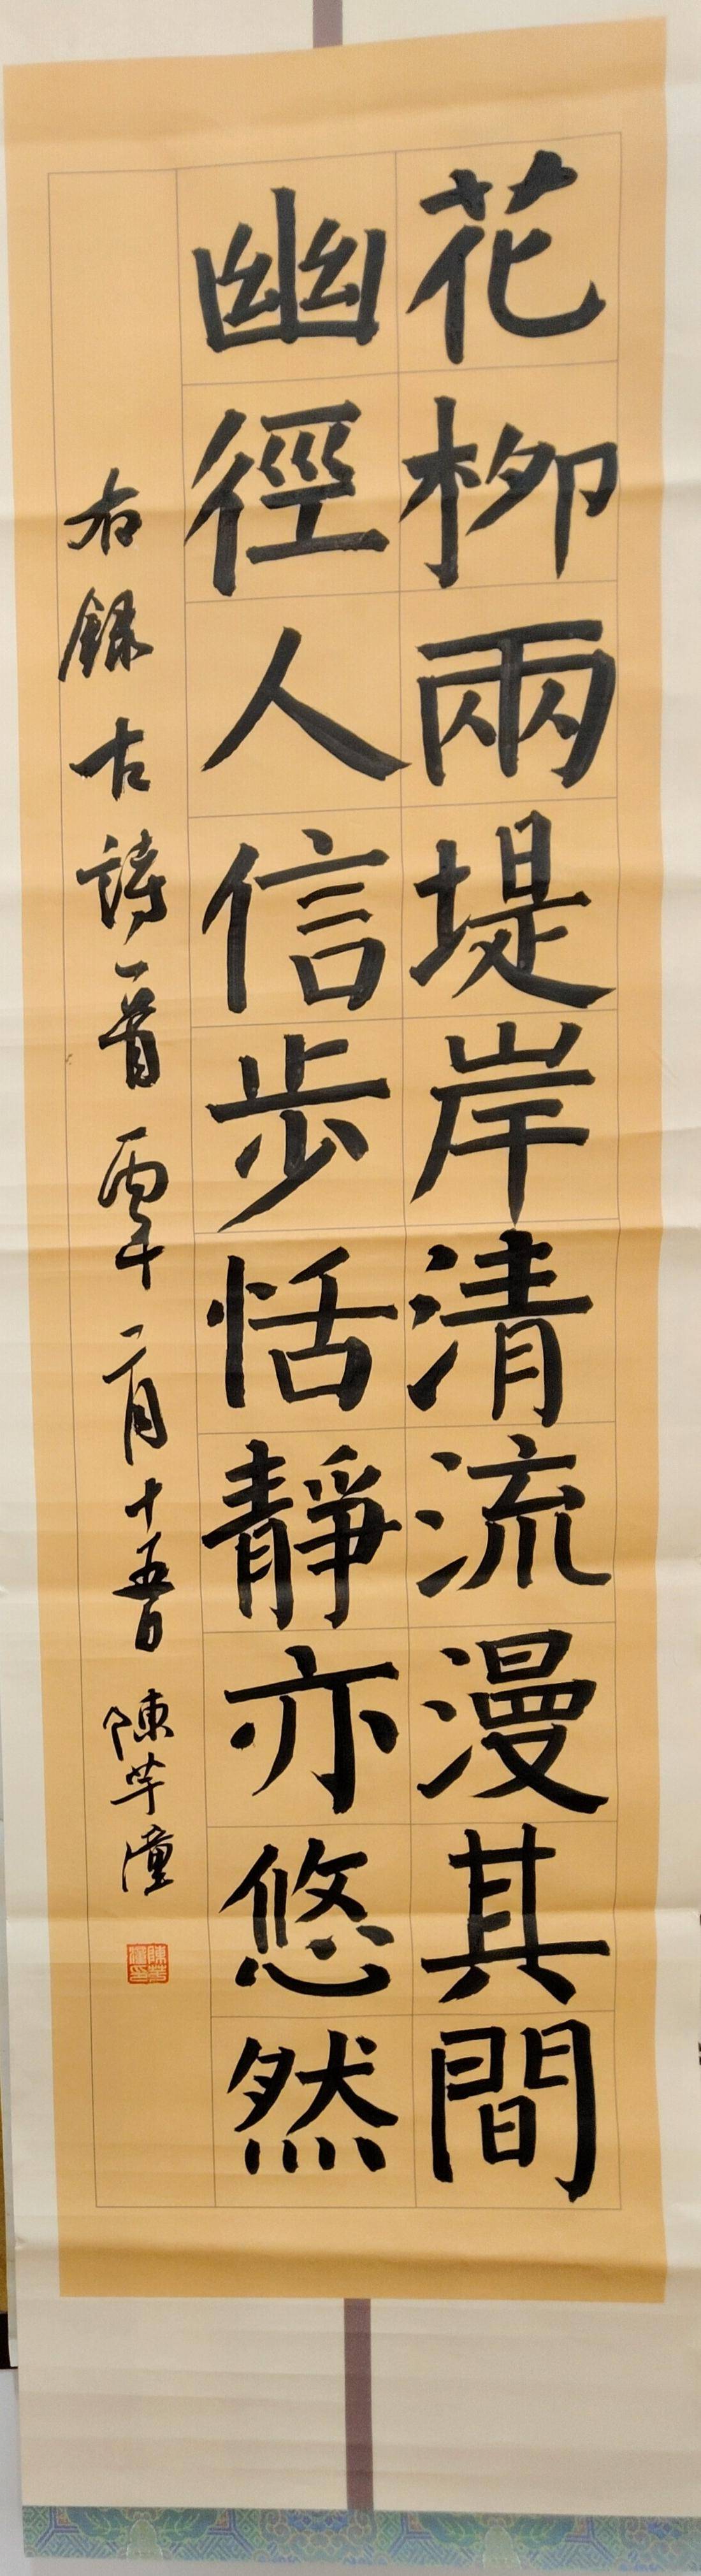 花柳兩堤岸清流漫其間
幽徑人信步恬靜亦悠然
右錄古詩一首 丙午二月十五日 陳芊潼